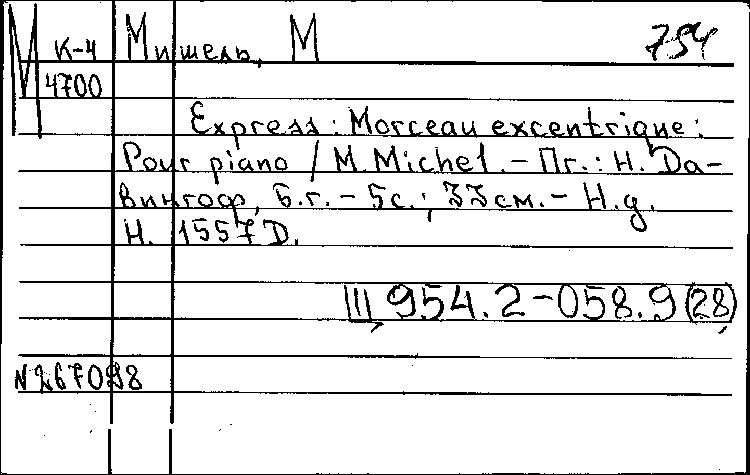 М К-4 Мишель, М 754
4700
Express : Morceau excentrique :
Pour piano / M. Michel. – Пг. : Н. Да-
вингоф, Б.г. – 5с.; 33см. – Н.д.
Н. 1557 D.
Щ 954.2-058.9(28)
N267098